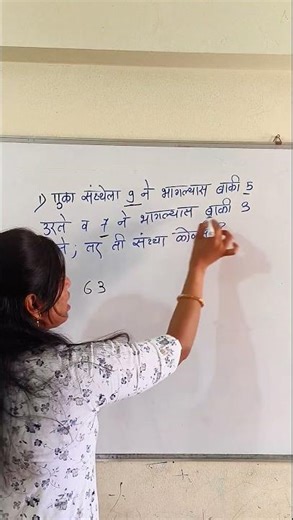 1) एका संख्येला 9 ने भागल्यास बाकी 5
उरते व 7 ने भागल्यास बाकी 3
; तर ती संख्या
63